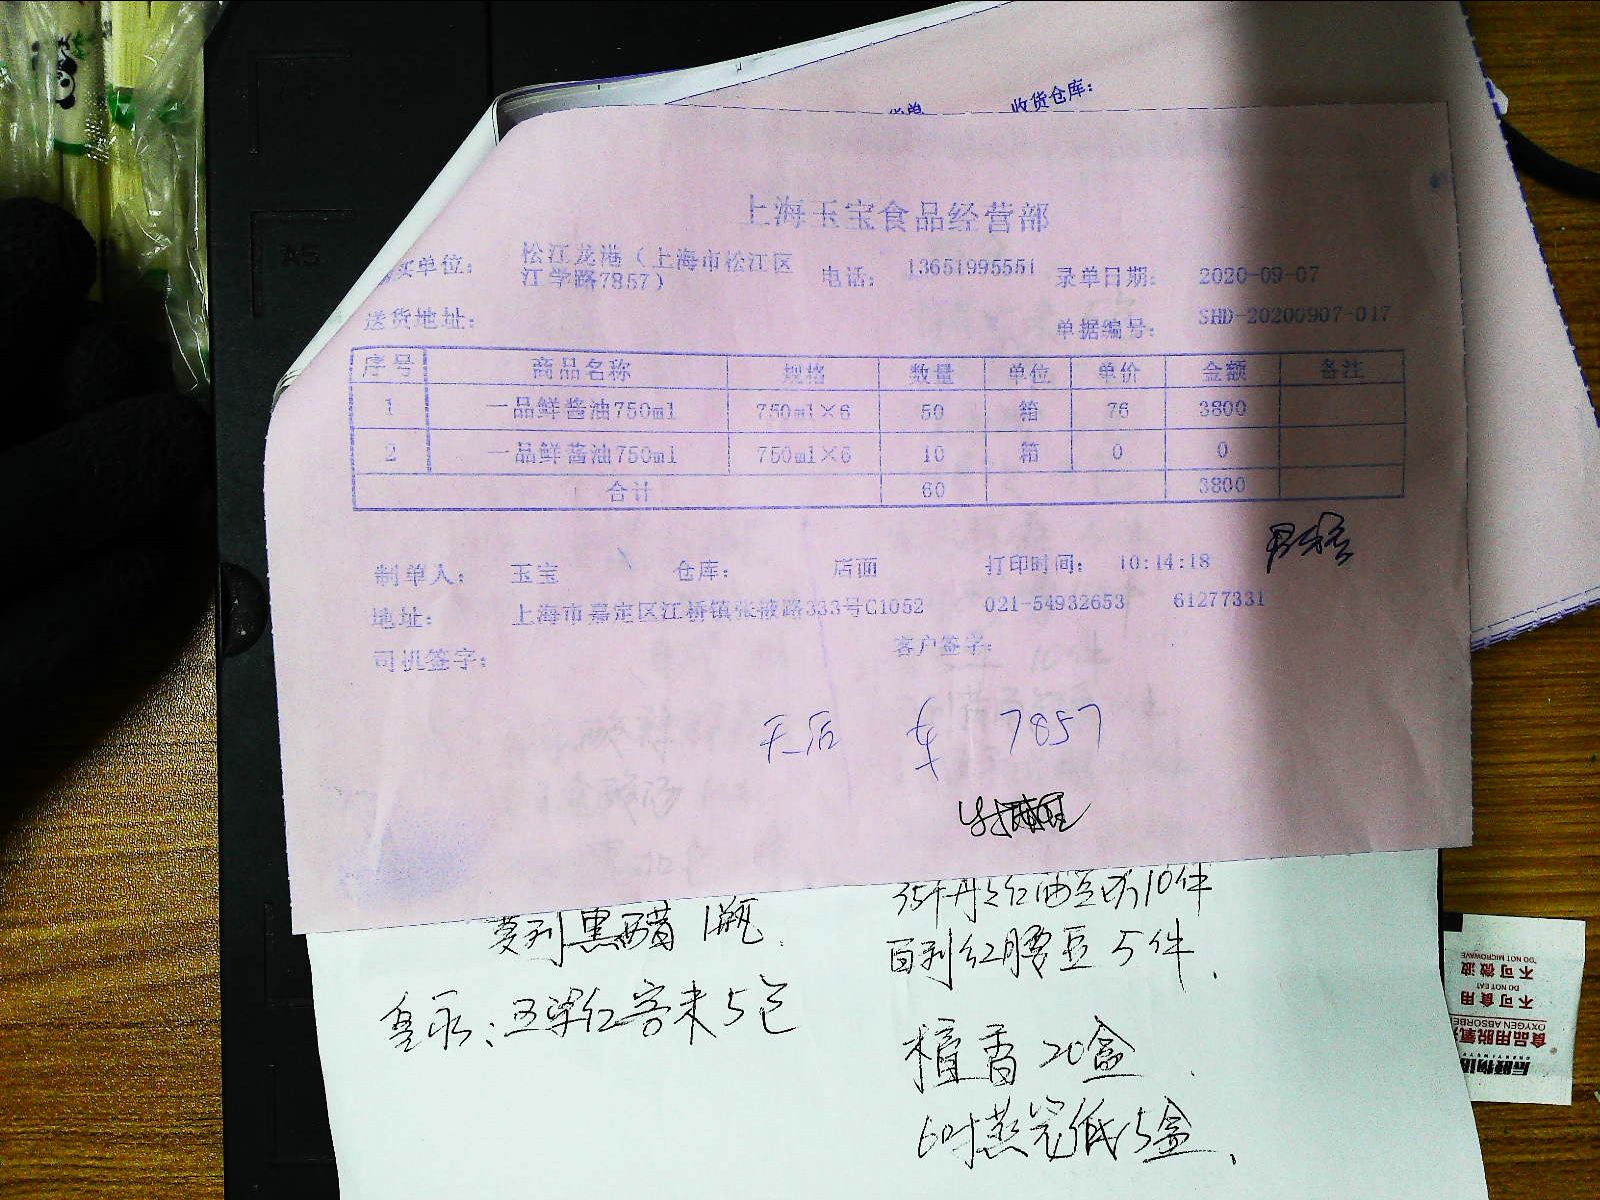 收货仓库：
上海玉宝食品经营部
买单位： 松江龙港（上海市松江区江学路7857） 电话： 13651995551 录单日期： 2020-09-07
送货地址： 单据编号： SHD-20200907-017
序号 商品名称 规格 数量 单位 单价 金额 备注
1 一品鲜酱油750ml 750ml×6 50 箱 76 3800
2 一品鲜酱油750ml 750ml×6 10 箱 0 0
合计 60 3800
制单人： 玉宝 仓库： 店面 打印时间： 10:14:18
地址： 上海市嘉定区江桥镇张掖路333号C1052 021-54932653 61277331
司机签字： 客户签字：
7857
黑醋 1瓶
红油豆 10件
百利红腰豆 5件
5包
檀香 20盒
6吋蒸笼纸 5盒
A5
不可微波
"DO NOT MICROWAVE
不可食用
DO NOT EAT
OXYGEN ABSORBE
食品用脱氧